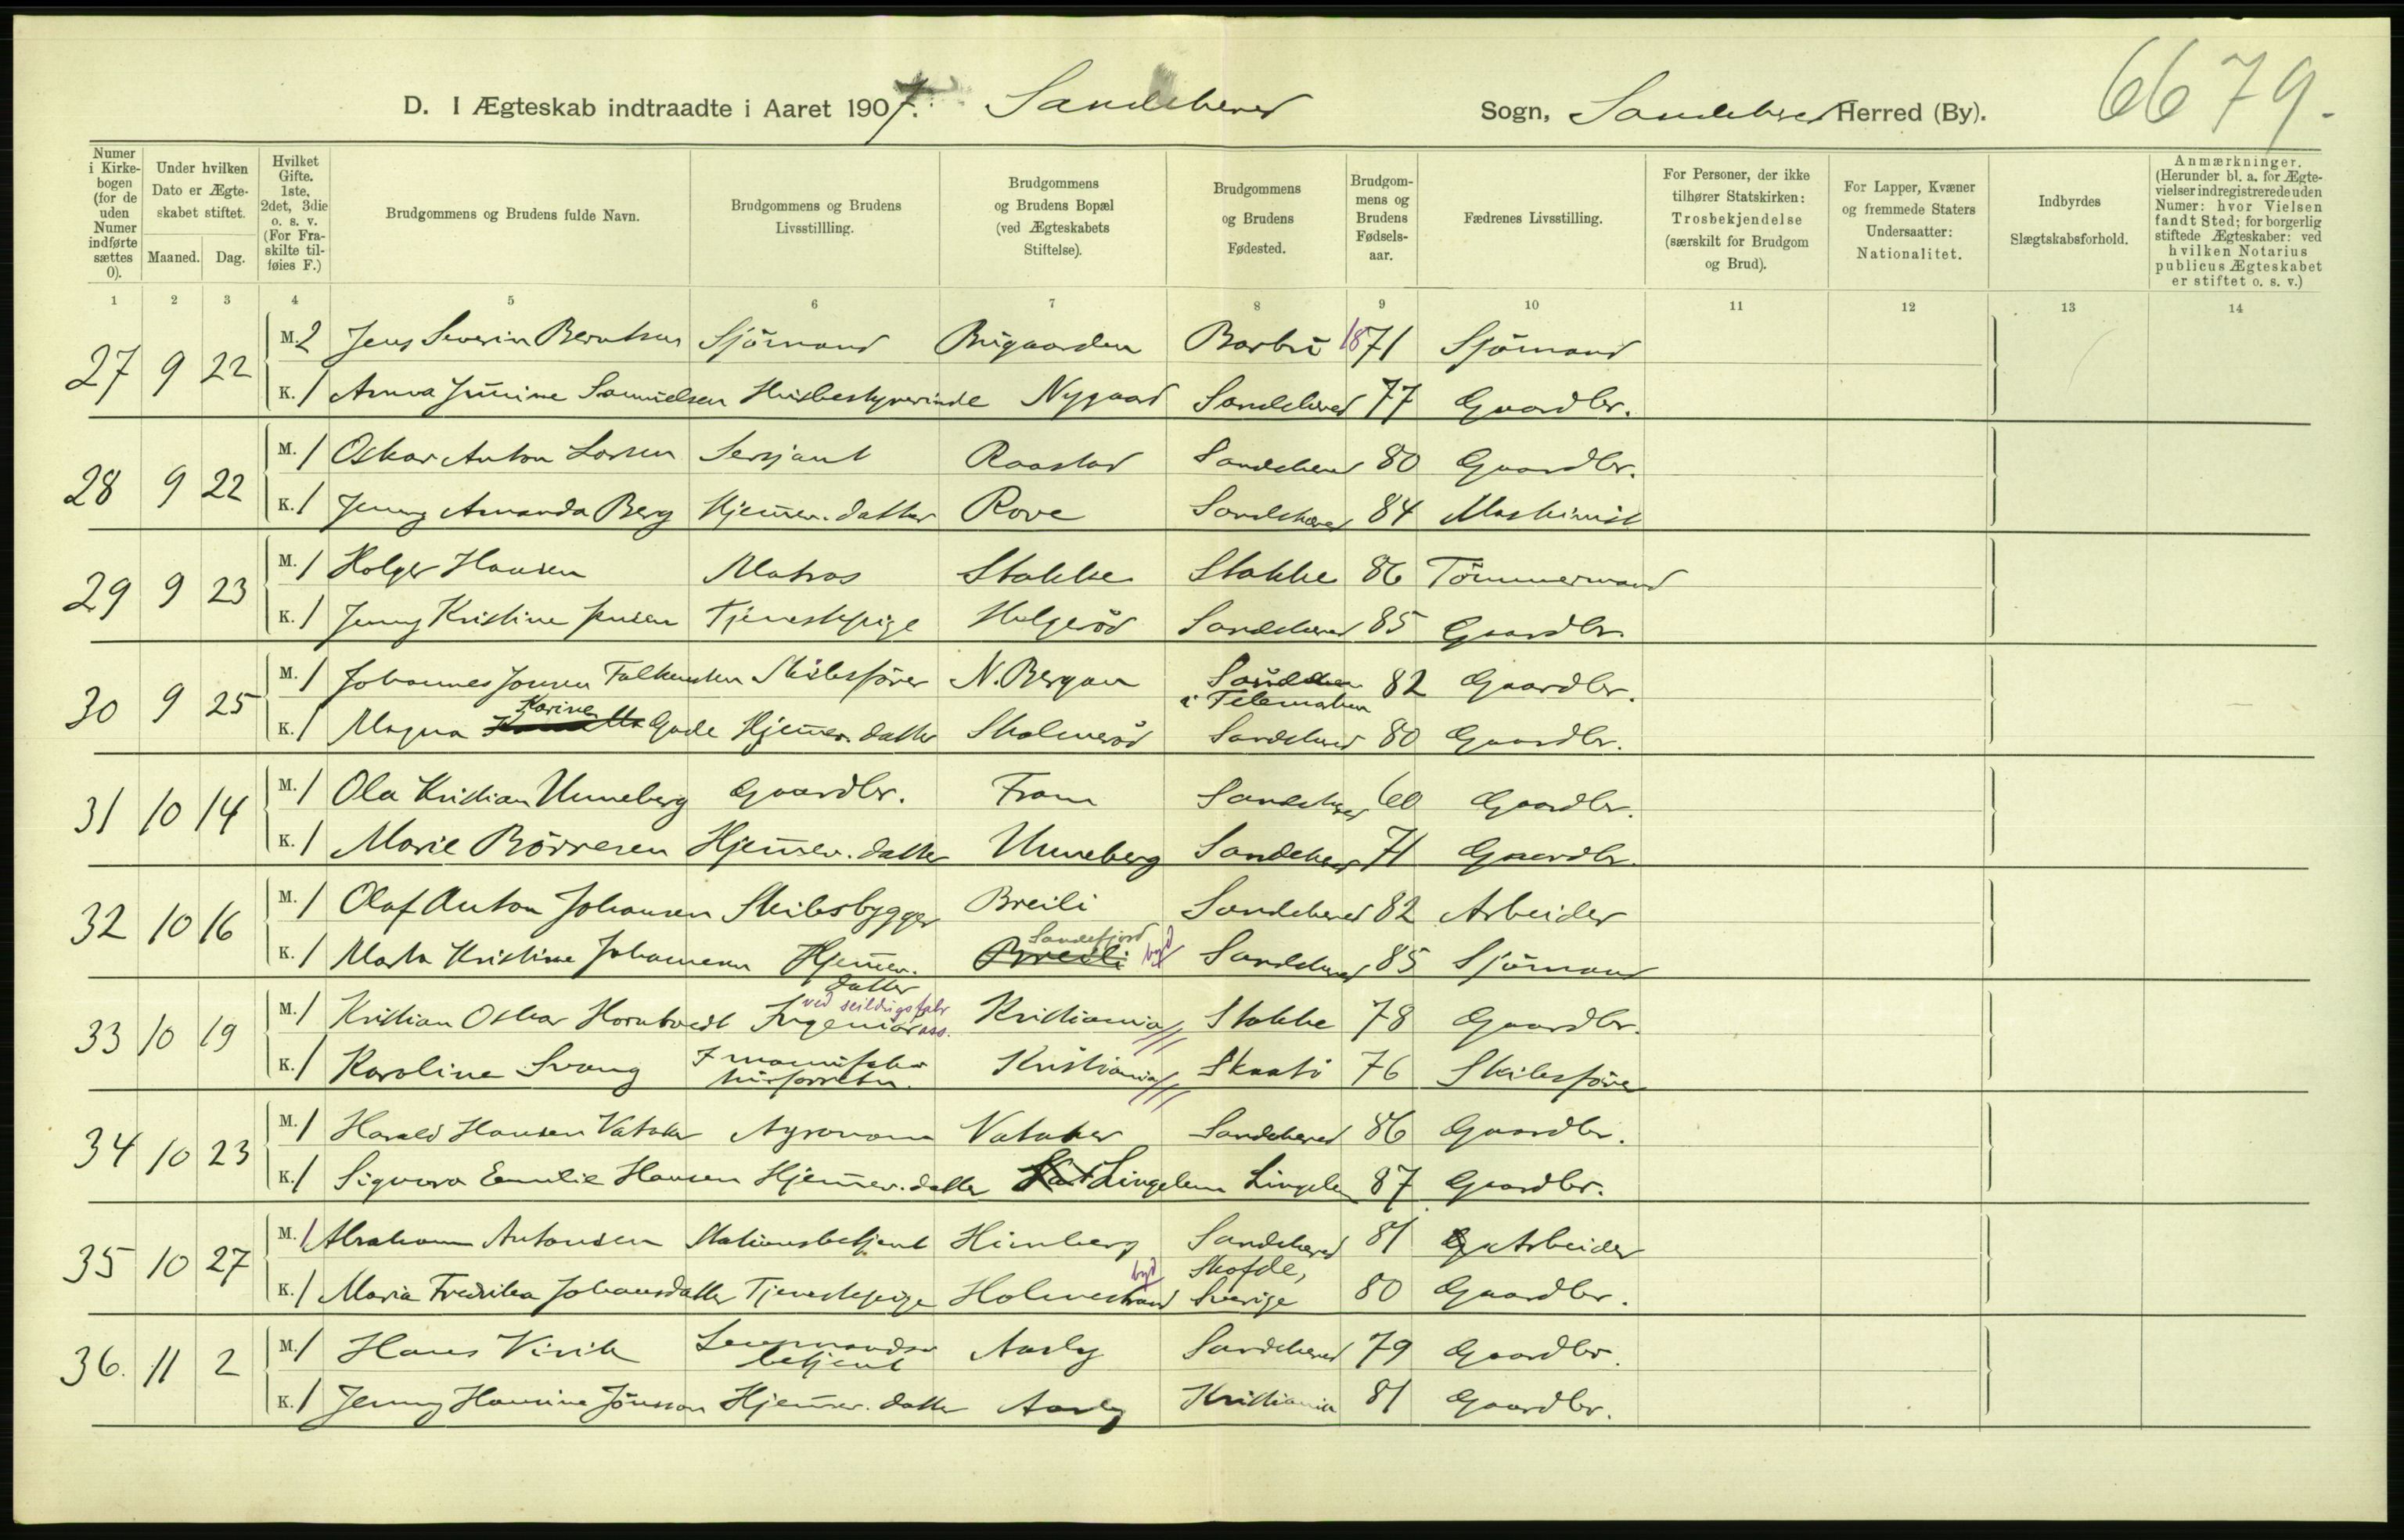 6679.
D. I Ægteskab indtraadte i Aaret 1907. Sandeherred Sogn, Sandeherred Herred (By).
Numer i Kirkebogen (for de uden Numer indførte sættes 0).
Under hvilken Dato er Ægteskabet stiftet.
Maaned. Dag.
Hvilket Gifte. 1ste, 2det, 3die o. s. v. (For Fraskilte tilføies F.)
Brudgommens og Brudens fulde Navn.
Brudgommens og Brudens Livsstillling.
Brudgommens og Brudens Bopæl (ved Ægteskabets Stiftelse).
Brudgommens og Brudens Fødested.
Brudgommens og Brudens Fødselsaar.
Fædrenes Livsstilling.
For Personer, der ikke tilhører Statskirken: Trosbekjendelse (særskilt for Brudgom og Brud).
For Lapper, Kvæner og fremmede Staters Undersaatter: Nationalitet.
Indbyrdes Slægtskabsforhold.
Anmærkninger. (Herunder bl. a. for Ægtevielser indregistrerede uden Numer: hvor Vielsen fandt Sted; for borgerlig stiftede Ægteskaber: ved hvilken Notarius publicus Ægteskabet er stiftet o. s. v.)
1 2 3 4 5 6 7 8 9 10 11 12 13 14
27 9 22 M. 2 Jens Severin Berntsen Sjömand Bugaarden Barbu 1871 Sjömand
K. 1 Anna Junine Samuelsen Husbestyrerinde Nygaard Sandeherred 77 Gaardbr.
28 9 22 M. 1 Oskar Anton Larsen Sersjant Raastad Sandeherred 80 Gaardbr.
K. 1 Jenny Amanda Berg Hjemmev. datter Rove Sandeherred 84 Maskinist
29 9 23 M. 1 Holger Hansen Matros Stokke Stokke 86 Tömmermand
K. 1 Jenny Kristine Jensen Tjenestepige Helgeröd Sandeherred 85 Gaardbr.
30 9 25 M. 1 Johannes Jonsen Falkensten Skibsförer N. Bergan i Telemarken 82 Gaardbr.
K. 1 Magna Karine Gade Hjemmev. datter Skolmeröd Sandeherred 80 Gaardbr.
31 10 14 M. 1 Ola Kristian Unneberg Gaardbr. Fram Sandeherred 60 Gaardbr.
K. 1 Marie Börresen Hjemmev. datter Unneberg Sandeherred 71 Gaardbr.
32 10 16 M. 1 Olaf Anton Johansen Skibsbygger Breili Sandeherred 82 Arbeider
K. 1 Marta Kristine Johannesen Hjemmev. datter Breili Sandefjord by Sandeherred 85 Sjömand
33 10 19 M. 1 Kristian Oskar Horntvedt Ingeniörass. ved seildugsfabr Kristiania Stokke 78 Gaardbr.
K. 1 Karoline Svang I manufakturforretn. Kristiania Skaatö 76 Skibsförer
34 10 23 M. 1 Harald Hansen Vataker Agronom Vataker Sandeherred 86 Gaardbr.
K. 1 Signora Emilie Hansen Hjemmev. datter Lingelem Lingelem 87 Gaardbr.
35 10 27 M. 1 Abraham Antonsen Stationsbetjent Himberg Sandeherred 81 Arbeider
K. 1 Maria Fredrika Johansdatter Tjenestepige Holmestrand by Skofde, Sverige 80 Gaardbr.
36. 11 2 M. 1 Hans Virik Lensmandsbetjent Aasly Sandeherred 79 Gaardbr.
K. 1 Jenny Hansine Jönsson Hjemmev. datter Aasly Kristiania 81 Gaardbr.